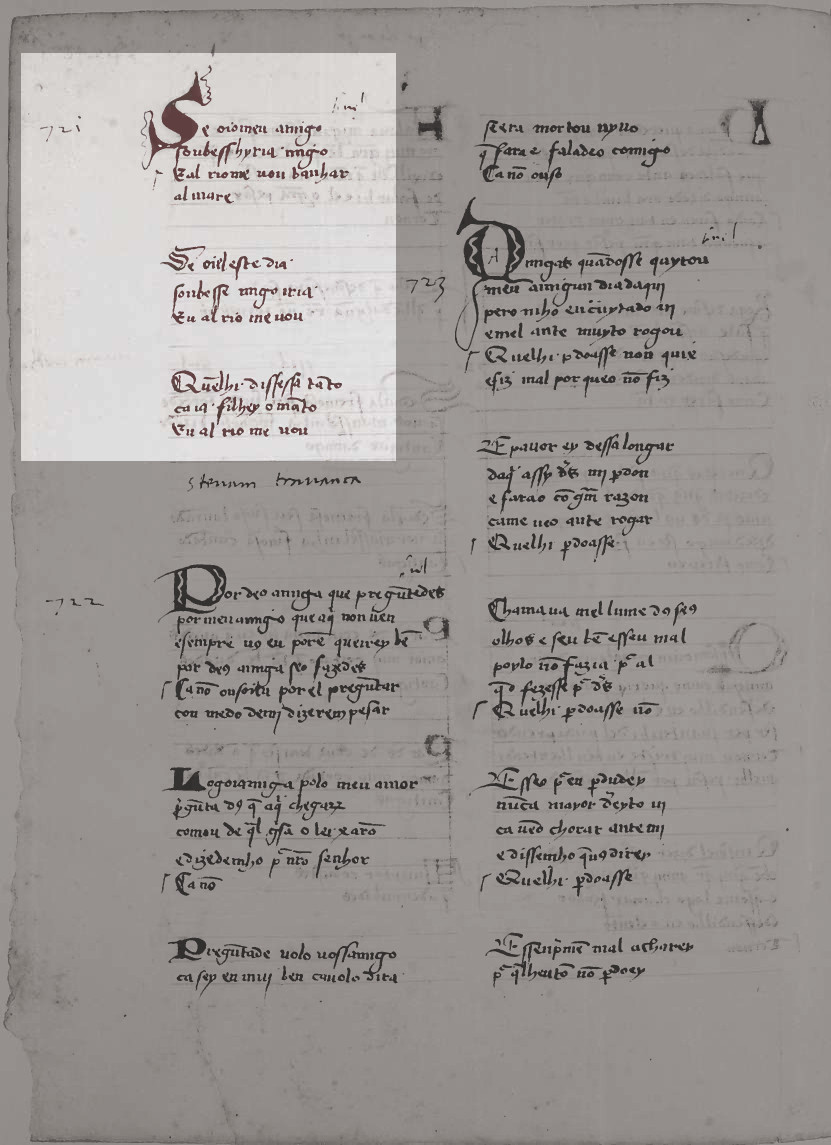 721
Se oiomeu amigo
soubess hyria migo
Eal riome uou banhar
al mare
Se oiel este dia
soubesse migo iria
Eu al rio me uou
Quelhi dissessa tãto
ca ia filhey o mãto
Eu al rio me uou
stevam travanca
722
Por deo amiga que pregũtedes
por meu amigo que aqi non uen
esempre uꝯ eu porẽ querrey bẽ
par deꝯ amiga seo fazedes
Ca nõ ousoiru por el preguntar
con medo demj dizerem pesar
Logoiamiga polo meu amor
comou de
edizedemho pr̃ nr̃o senhor
Ca nõ
Preguntade uolo uossamigo
ca sey en mui ben cauolo dira
seera mortou uyuo
q̃ faz e faladeo comigo
Ca nõ ouso
723
Amigas quãdosse quytou
meu amigun dia daqui
pero miho eu cuytado ui
emel ante muyto rogou
Quelhi pdoasse non quix
e fiz mal por queo nõ fiz
E pauor ey dessalongar
daq̃ assy ds̃ mi pdon
e farao cõ grãm razon
came ueo ante rogar
Quelhi pdoasse
Chamaua mel lume dꝯ seꝯ
olhos e seu bẽ esseu mal
poylo nõ fazia pr̃ al
q̃o fezesse pr̃ ds̃
Quelhi pdoasse nõ
Esseo pr̃ en pdudey
nũca mayor deyto ui
ca ueo chorar ante mi
edissemho quen uꝯ direy
Quelhi pdoasse
Essenpr̃men mal acharey
pr̃ q̃lhentõ nõ pdoey